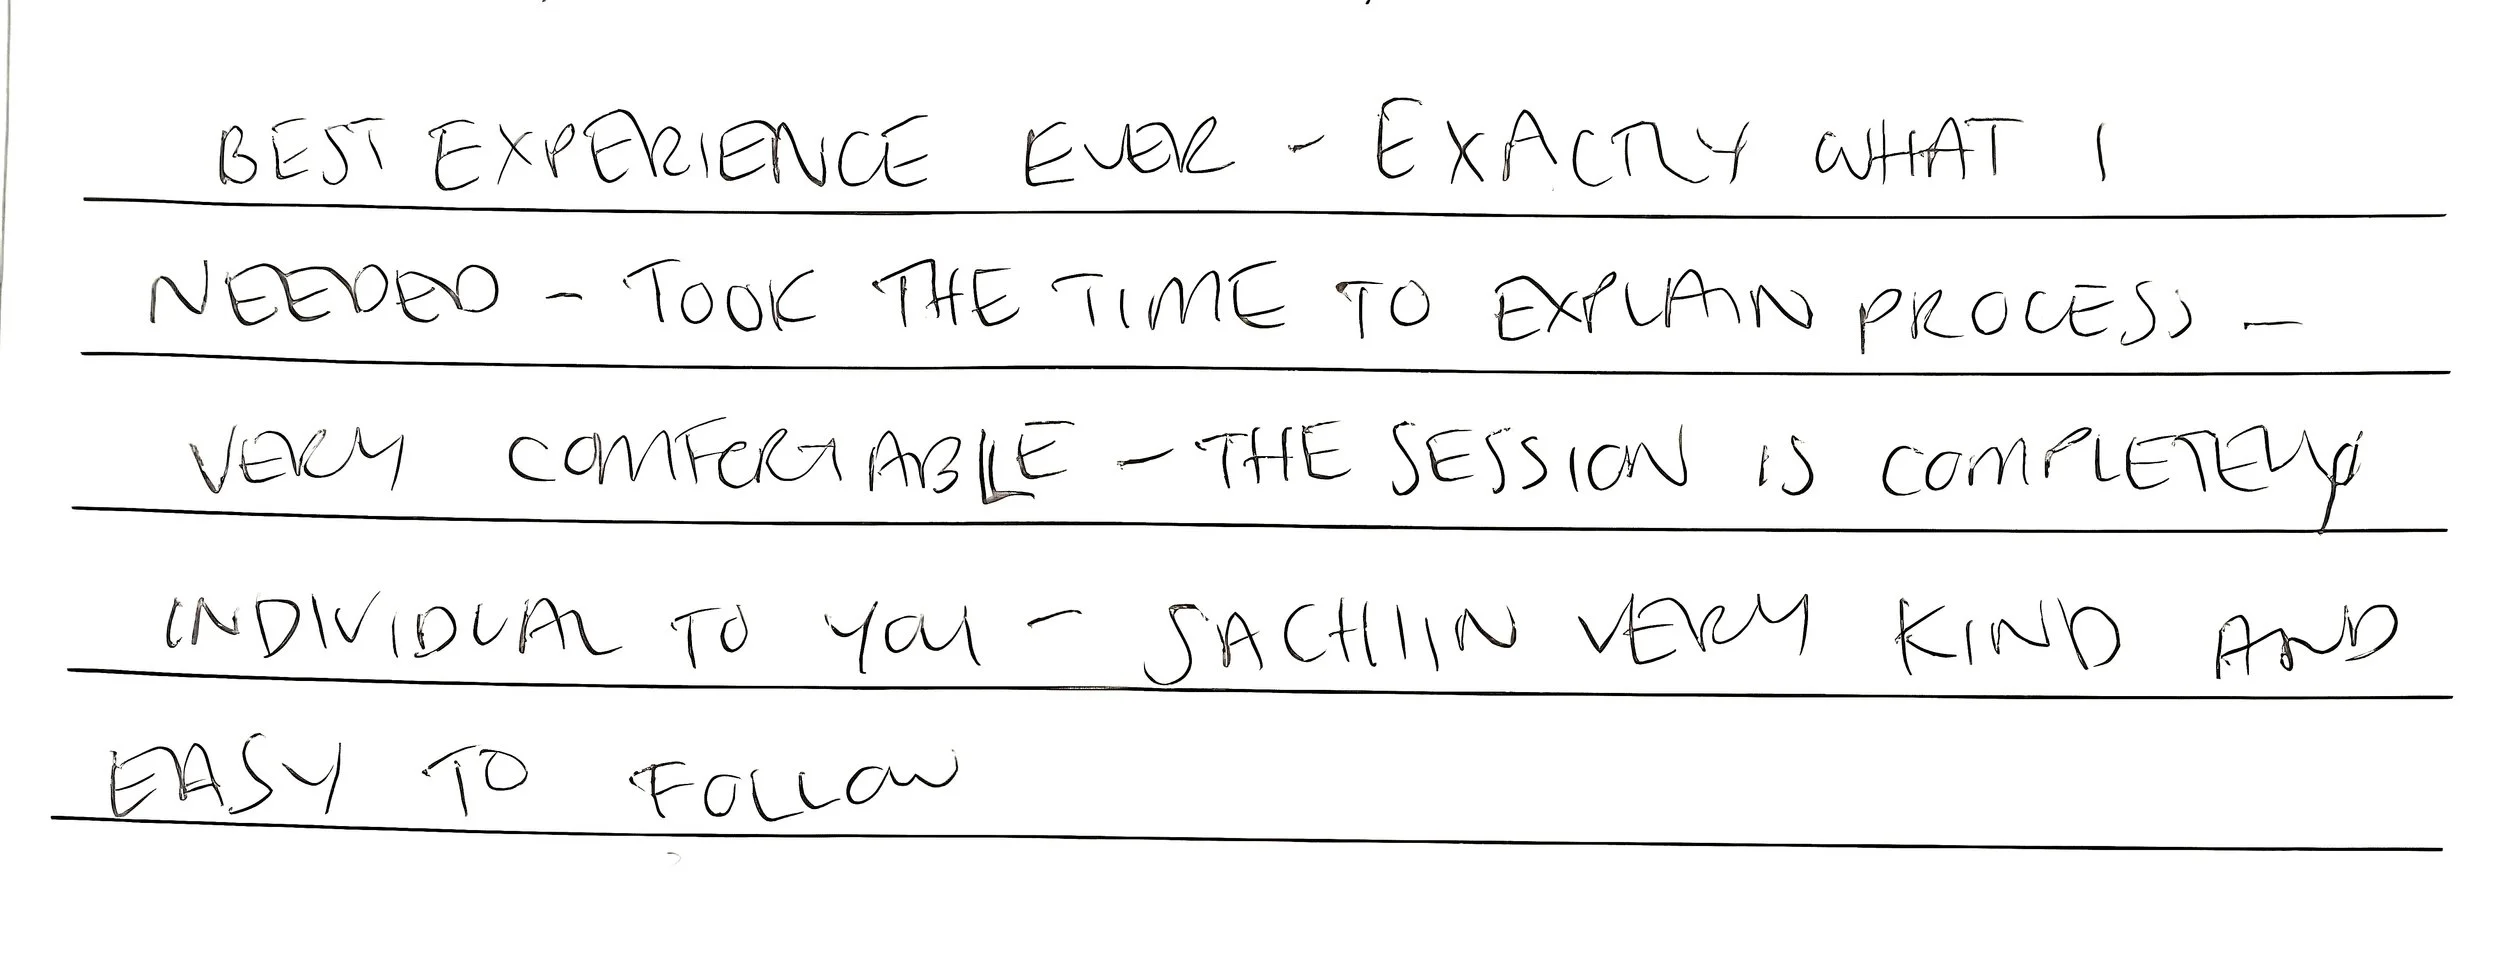 BEST EXPERIENCE EVER - EXACTLY WHAT I
NEEDED - TOOK THE TIME TO EXPLAIN PROCESS -
VERY COMFORTABLE - THE SESSION IS COMPLETELY
INDIVIDUAL TO YOU - SACHIIN VERY KIND AND
EASY TO FOLLOW